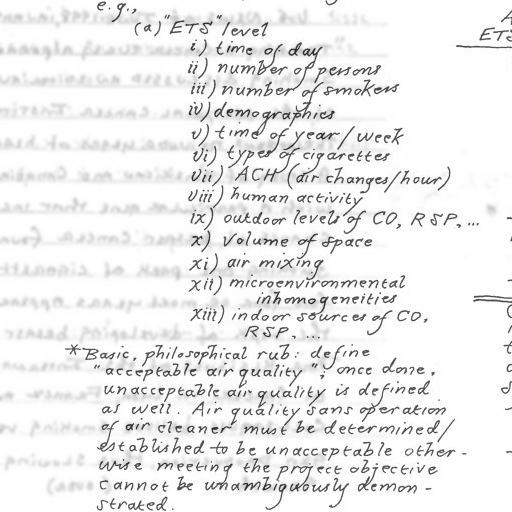 e.g.,
(a) "ETS" level
i) time of day
ii) number of persons
iii) number of smokers
iv) demographics
v) time of year/week
vi) types of cigarettes
vii) ACH (air changes/hour)
viii) human activity
ix) outdoor levels of CO, RSP, ...
x) volume of space
xi) air mixing
xii) microenvironmental
inhomogeneities
xiii) indoor sources of CO,
RSP, ...
*Basic, philosophical rub: define
"acceptable air quality"; once done,
unacceptable air quality is defined
as well. Air quality sans operation
of air cleaner must be determined/
established to be unacceptable other-
wise meeting the project objective
cannot be unambiguously demon-
strated.
ETS